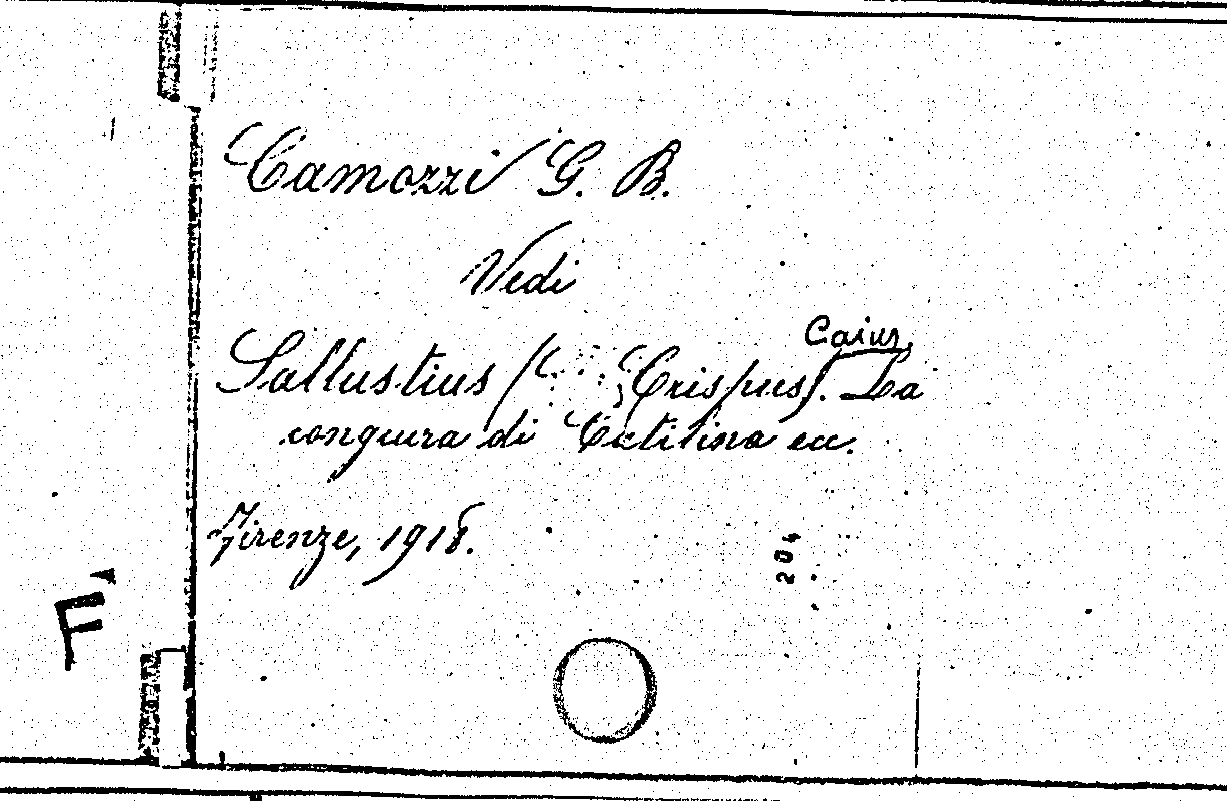 Camozzi G. B.
Vedi
Caius
Sallustius (C. Crispus). La
congiura di Catilina ecc.
Firenze, 1918.
204
F